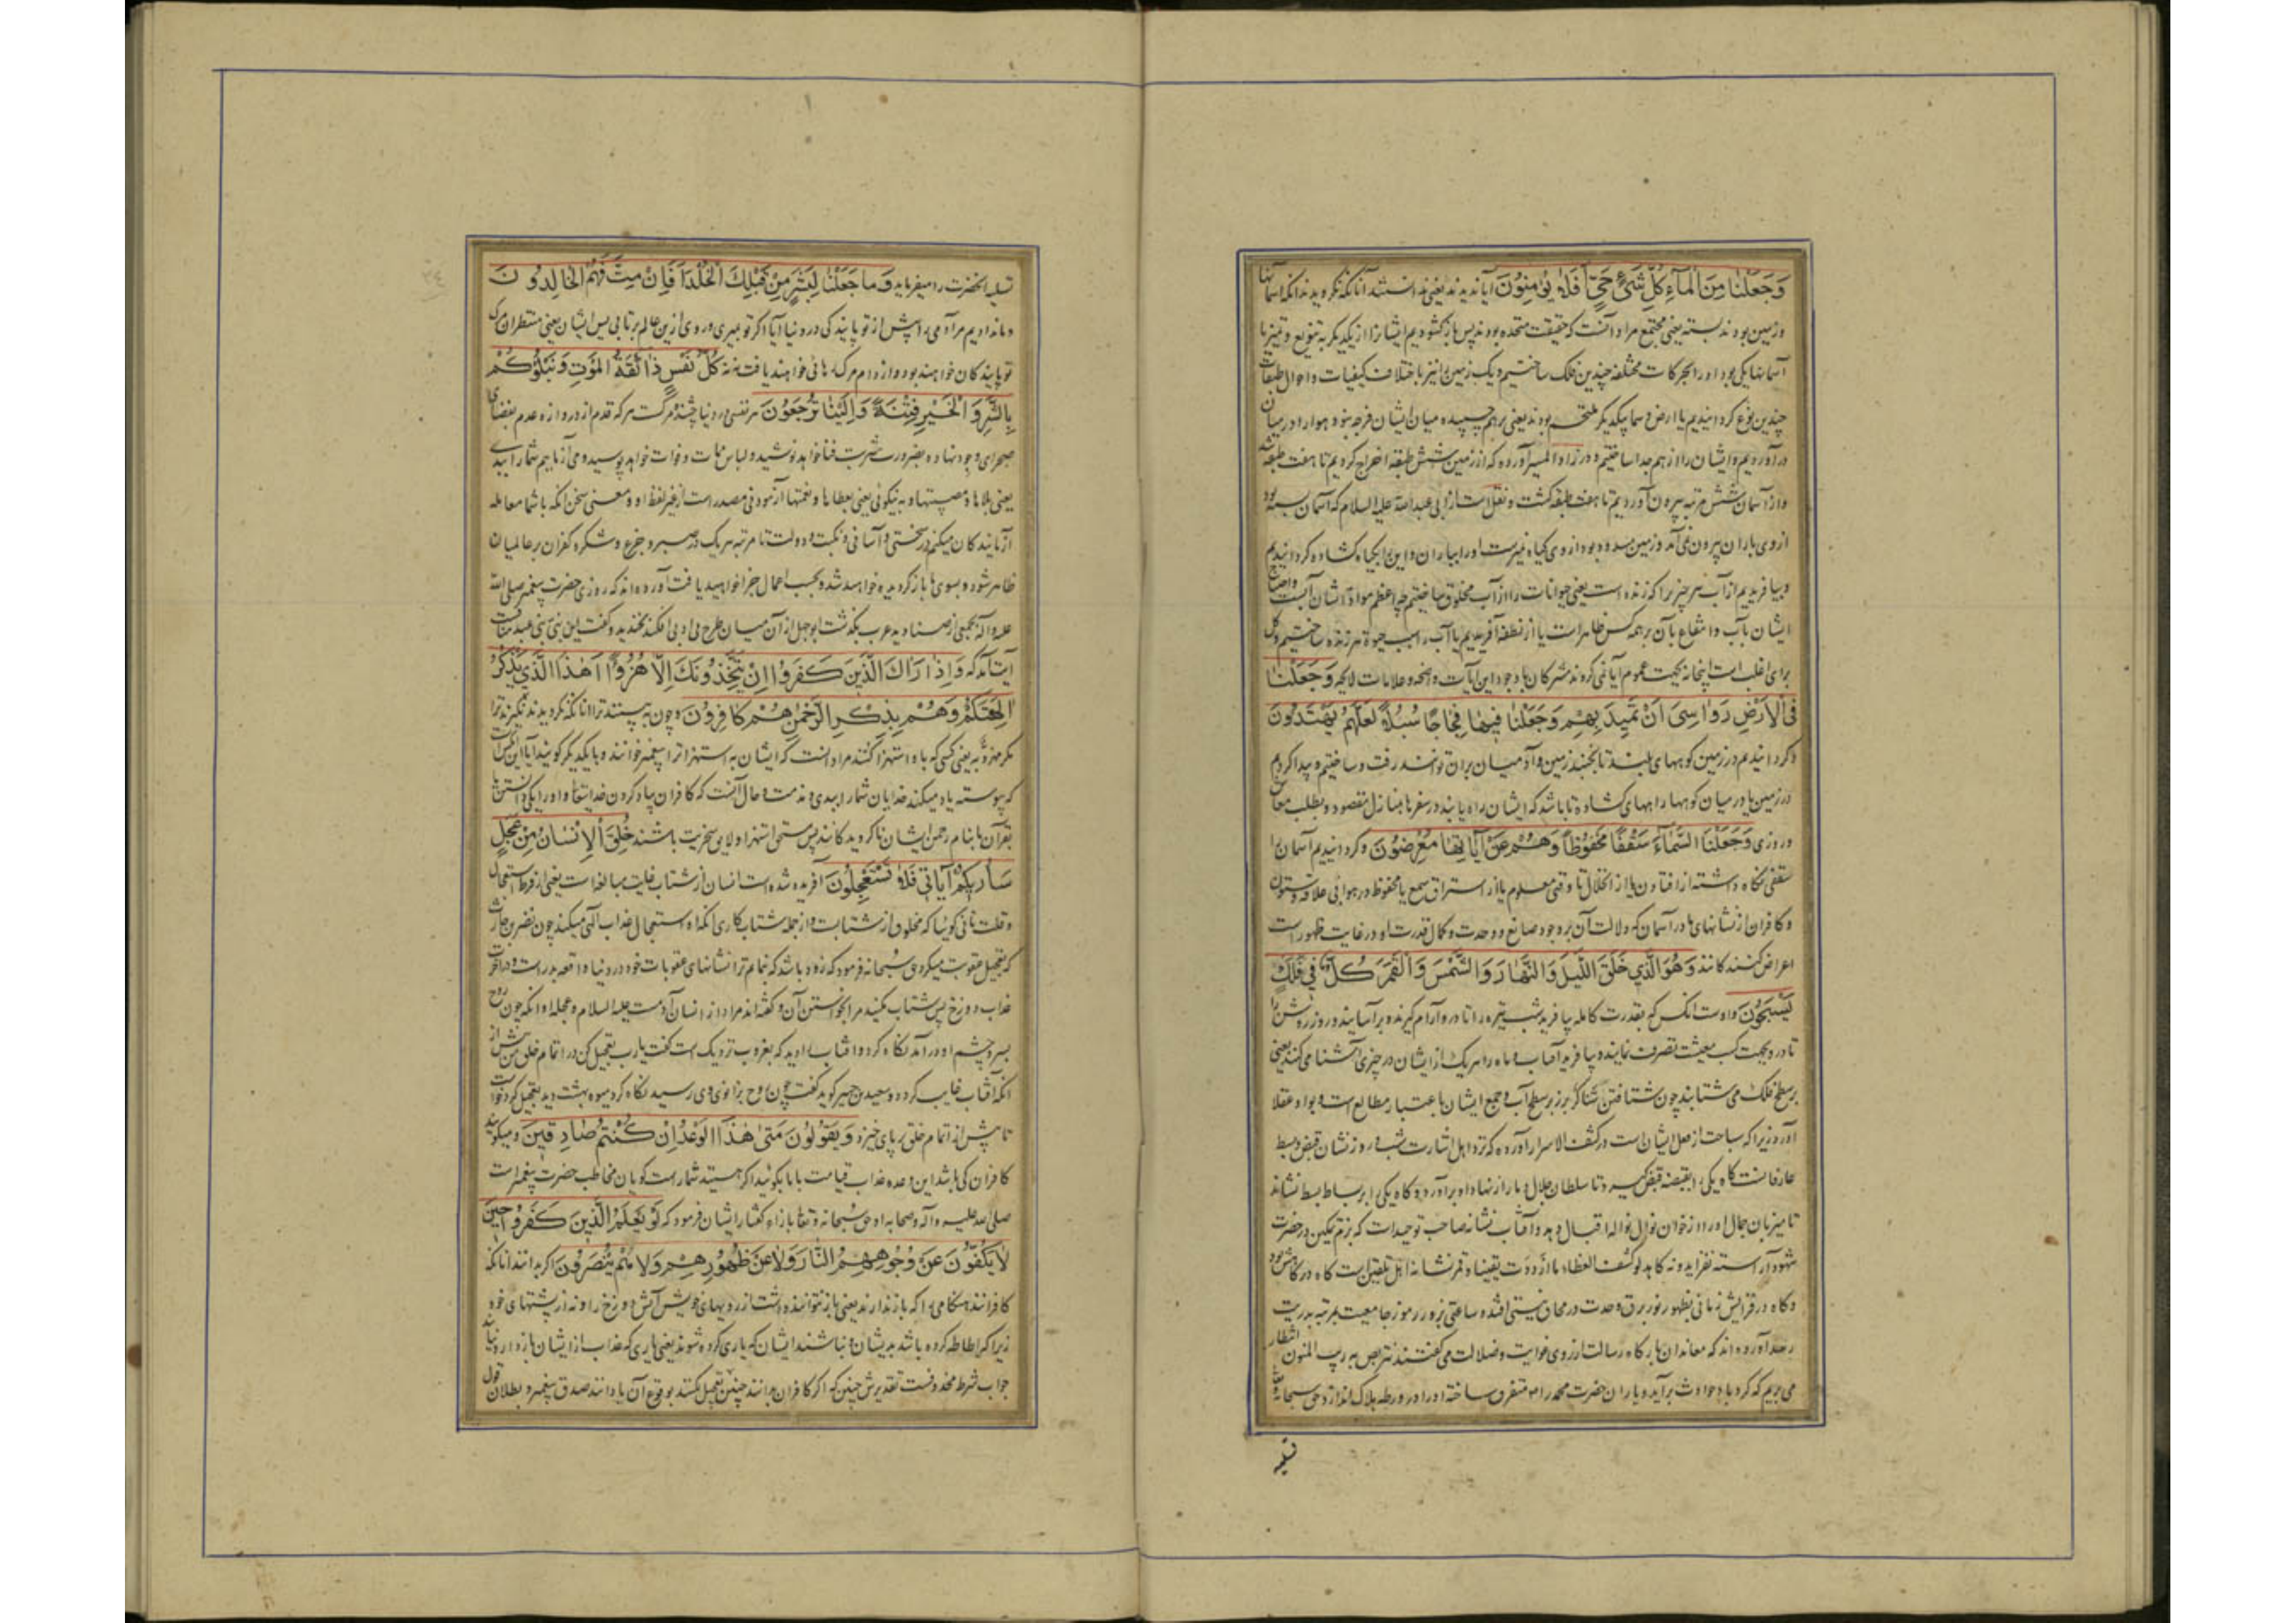 وَجَعَلْنَا مِنَ الْمَاءِ كُلَّ شَيْءٍ حَيٍّ أَفَلَا يُؤْمِنُونَ آیا ندیدند یعنی ندانستند آنانکه نگرویدند آنکه آسمانها
وزمین بودند بسته یعنی مجتمع مراد آنست که حقیقت متحده بودند پس بازکشودیم ایشانرا از یکدیگر به تنویع و تمییز یا
آسمانها یکی بود اورا بحرکات مختلفه چندین فلک ساختیم ویک زمین را نیز باختلاف کیفیات واحوال طبقات
چندین نوع کردانیدیم یا ارض وسما بیکدیگر ملتحم بودند یعنی برهم چسپیده میان ایشان فرجه نبود هوارا در میان
درآوردیم وایشان را از هم جدا ساختیم ودر زاد المسیر آورده که از زمین شش طبقه اخراج کردیم تا هفت طبقه شد
واز آسمان شش مرتبه بیرون آوردیم تا هفت طبقه کشت ونقلست از ابی عبد الله علیه السلام که آسمان بسته بود
از وی باران بیرون نمی آمد وزمین مسدوده بود از وی کیاه نمیرست اورا بباران واین را بکیاه کشاده کردانیدیم
وبیافریدیم از آب هر چیز را که زنده است یعنی حیوانات را از آب مخلوق ساختیم چه اعظم مواد ایشان آبست واحتیاج
ایشان بآب وانتفاع بآن بر همه کس ظاهر است یا از نطفه آفریدیم یا آب را سبب حیوة هر زنده ساختیم وکل
برای اغلب است اینجا نه بجهت عموم آیا نمی کروند مشرکان با وجود این آیات واضحه وعلامات لایحه وَجَعَلْنَا
فِي الْأَرْضِ رَوَاسِيَ أَنْ تَمِيدَ بِهِمْ وَجَعَلْنَا فِيهَا فِجَاجًا سُبُلًا لَعَلَّهُمْ يَهْتَدُونَ
وکردانیدیم در زمین کوههای بلند تا نجنبد زمین وآدمیان بران توانند رفت وساختیم وپیدا کردیم
در زمین یا در میان کوهها راههای کشاده تا باشد که ایشان راه یابند در سفرها بمنازل مقصود وبطلب معاش
وروزی وَجَعَلْنَا السَّمَاءَ سَقْفًا مَحْفُوظًا وَهُمْ عَنْ آيَاتِهَا مُعْرِضُونَ وکردانیدیم آسمان را
سقفی نکاه داشته از افتادن یا از انحلال تا وقتی معلوم یا از استراق سمع یا محفوظ در هوا بی علاقه وستون
وکافران از نشانهای ما در آسمان که دلالت آن بر وجود صانع ووحدت وکمال قدرت او در غایت ظهور است
اعراض کنندکانند وَهُوَ الَّذِي خَلَقَ اللَّيْلَ وَالنَّهَارَ وَالشَّمْسَ وَالْقَمَرَ كُلٌّ فِي فَلَكٍ
يَسْبَحُونَ واوست آنکس که بقدرت کامله بیافرید شب تیره را تا درو آرام کیرند وبرآسایند وروز روشن را
تا درو بجهت کسب معیشت تصرف نمایند وبیافرید آفتاب وماه را هر یک از ایشان در چیزی آشنا می کنند یعنی
بر سطح فلک می شتابند چون شتافتن شناکر بر سطح آب وجمع ایشان باعتبار مطالع است وبواو عقلا
آورد زیرا که سباحت از فعل ایشان است در کشف الاسرار آورده که نزد اهل اشارت شب وروز نشان قبض وبسط
عارفانست کاه یکی را بقبضه قبض کیرد تا سلطان جلال دمار از نهاد او برآورد وکاه یکی را بر بساط بسط نشاند
تا میزبان جمال اورا از خوان نوال نواله اقبال دهد وآفتاب نشانه صاحب توحید است که بر تمکین در حضرت
شهود آراسته نفزاید ونه کاهد لو کشف الغطاء ما ازددت یقینا وقمر نشانه اهل تلوین است کاه در کاهش بود
وکاه در فزایش زمانی بظهور نور برق وحدت در محاق نیستی افتد وساعتی ببروز رموز جامعیت بمرتبه بدریت
رسد آورده اند که معاندان بارکاه رسالت از روی غوایت وضلالت می کفتند نتربص به ریب المنون انتظار
می بریم که کردباد حوادث برآید ویاران حضرت محمد را متفرق ساخته اورا در ورطه هلاک اندازد حق سبحانه
تسلیه
تسلیه آنحضرت را میفرماید وَمَا جَعَلْنَا لِبَشَرٍ مِنْ قَبْلِكَ الْخُلْدَ أَفَإِنْ مِتَّ فَهُمُ الْخَالِدُونَ
وما ندادیم مر آدمی را پیش از تو پایندکی در دنیا آیا اکر تو بمیری وروی ازین عالم برتابی پس ایشان یعنی منتظران مرک
تو پایندکان خواهند بود واز دام مرک رهائی خواهند یافت نه نه كُلُّ نَفْسٍ ذَائِقَةُ الْمَوْتِ وَنَبْلُوكُمْ
بِالشَّرِّ وَالْخَيْرِ فِتْنَةً وَإِلَيْنَا تُرْجَعُونَ هر نفسی در دنیا چشنده مرکست هر که قدم از دروازه عدم بفضای
صحرای وجود نهاده بضرورت شربت فنا خواهد نوشید ولباس ممات وفوات خواهد پوشید ومی آزماییم شما را ببدی
یعنی بلاها ومصیبتها وبه نیکوئی یعنی بعطاها ونعمتها آزمودنی مصدر است از غیر لفظ او ومعنی سخن آنکه با شما معامله
آزمایندکان میکنیم در سختی وآسانی ونکبت ودولت تا مرتبه هر یک در صبر وجزع وشکر وکفران بر عالمیان
ظاهر شود وبسوی ما بازکردیده خواهید شد وبحسب اعمال جزا خواهید یافت آورده اند که روزی حضرت پیغمبر صلی الله
علیه وآله بجمعی از صنادید عرب بکذشت ابوجهل از آن میان طرح بی ادبی افکند بخندید وکفت این نبی بنی عبد مناف است
آیت آمد که وَإِذَا رَآكَ الَّذِينَ كَفَرُوا إِنْ يَتَّخِذُونَكَ إِلَّا هُزُوًا أَهَذَا الَّذِي يَذْكُرُ
آلِهَتَكُمْ وَهُمْ بِذِكْرِ الرَّحْمَنِ هُمْ كَافِرُونَ وچون به بینند ترا آنانکه نکرویدند نکیرند ترا
مکر مهزو به یعنی کسی که باو استهزا کنند مراد آنست که ایشان به استهزا ترا پیغمبر خوانند وبا یکدیکر کویند آیا این کس است
که پیوسته یاد میکند خدایان شما را ببدی ومذمت وحال آنست که کافران بیاد کردن خدایتعالی واورا بیکی دانستن یا
بقرآن یا بنام رحمن ایشان ناکرویدکانند پس مستحق استهزا ولایق سخریت باشند خُلِقَ الْإِنْسَانُ مِنْ عَجَلٍ
سَأُرِيكُمْ آيَاتِي فَلَا تَسْتَعْجِلُونَ آفریده شده است انسان از شتاب غایت مبالغه است یعنی از فرط استعجال
وقلت تانی کوئیا که مخلوق از شتابست واز جمله شتاب کاری آنکه استعجال عذاب الهی میکند چون نضر بن حارث
که تعجیل عقوبت میکرد حق سبحانه فرمود که زود باشد که بنمایم ترا نشانهای عقوبات خود در دنیا واقعه بدر است ودر آخرت
عذاب دوزخ پس شتاب مکنید مرا بخواستن آن وکفته اند مراد از انسان آدمست علیه السلام وعجله او آنکه چون روح
بسر وچشم او درآمد نکاه کرد وآفتاب را دید که بغروب نزدیک است کفت یا رب تعجیل کن در اتمام خلق من پیش از
آنکه آفتاب غایب کردد وسعید بن جبیر کوید کفت چون روح بزانوی وی رسید نکاه کرد میوه بهشت دید تعجیل کرد وخواست
تا پیش از اتمام خلق بر پای خیزد وَيَقُولُونَ مَتَى هَذَا الْوَعْدُ إِنْ كُنْتُمْ صَادِقِينَ ومیکویند
کافران کی باشد این وعده عذاب قیامت با ما بکوئید اکر هستید شما راست کویان مخاطب حضرت پیغمبر است
صلی الله علیه وآله وصحابه او حق سبحانه وتعالی بازاء کفتار ایشان فرمود که لَوْ يَعْلَمُ الَّذِينَ كَفَرُوا حِينَ
لَا يَكُفُّونَ عَنْ وُجُوهِهِمُ النَّارَ وَلَا عَنْ ظُهُورِهِمْ وَلَا هُمْ يُنْصَرُونَ اکر بدانند آنانکه
کافرانند هنکامی را که باز ندارند یعنی باز نتوانند داشت از رویهای خویش آتش دوزخ را ونه از پشتهای خود
زیرا که احاطه کرده باشد بدیشان ونباشند ایشان که یاری کرده شوند یعنی یاری که عذاب از ایشان باز دارد نیابند
جواب شرط محذوفست تقدیرش چنین که اکر کافران بدانند چنین تعجیل نکنند بوقوع آن یا دانند صدق پیغمبر وبطلان قول